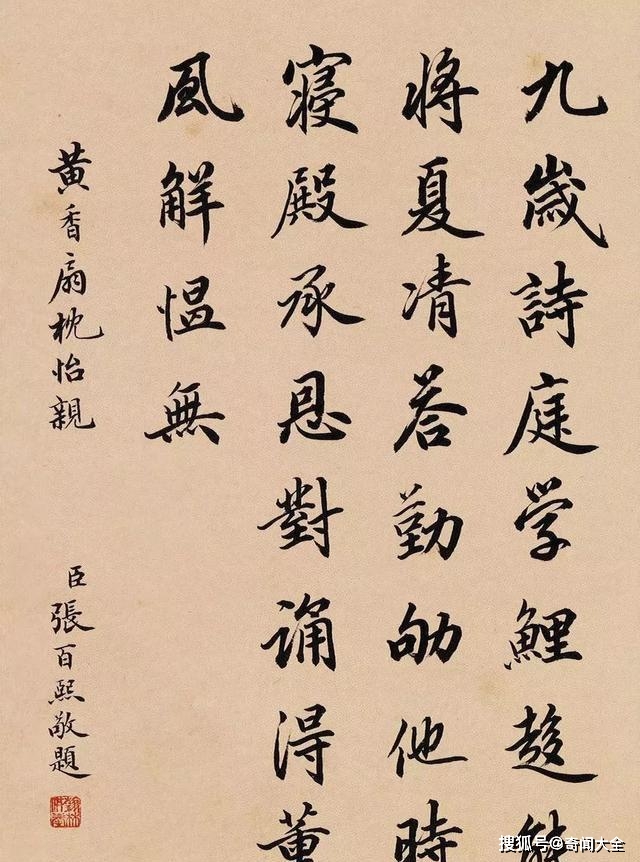 九歲詩庭学鯉趍能
将夏凊荅勤劬他時
寢殿承恩對誦得薰
風解愠無
黃香扇枕怡親
臣張百熙敬題
搜狐号@奇闻大全